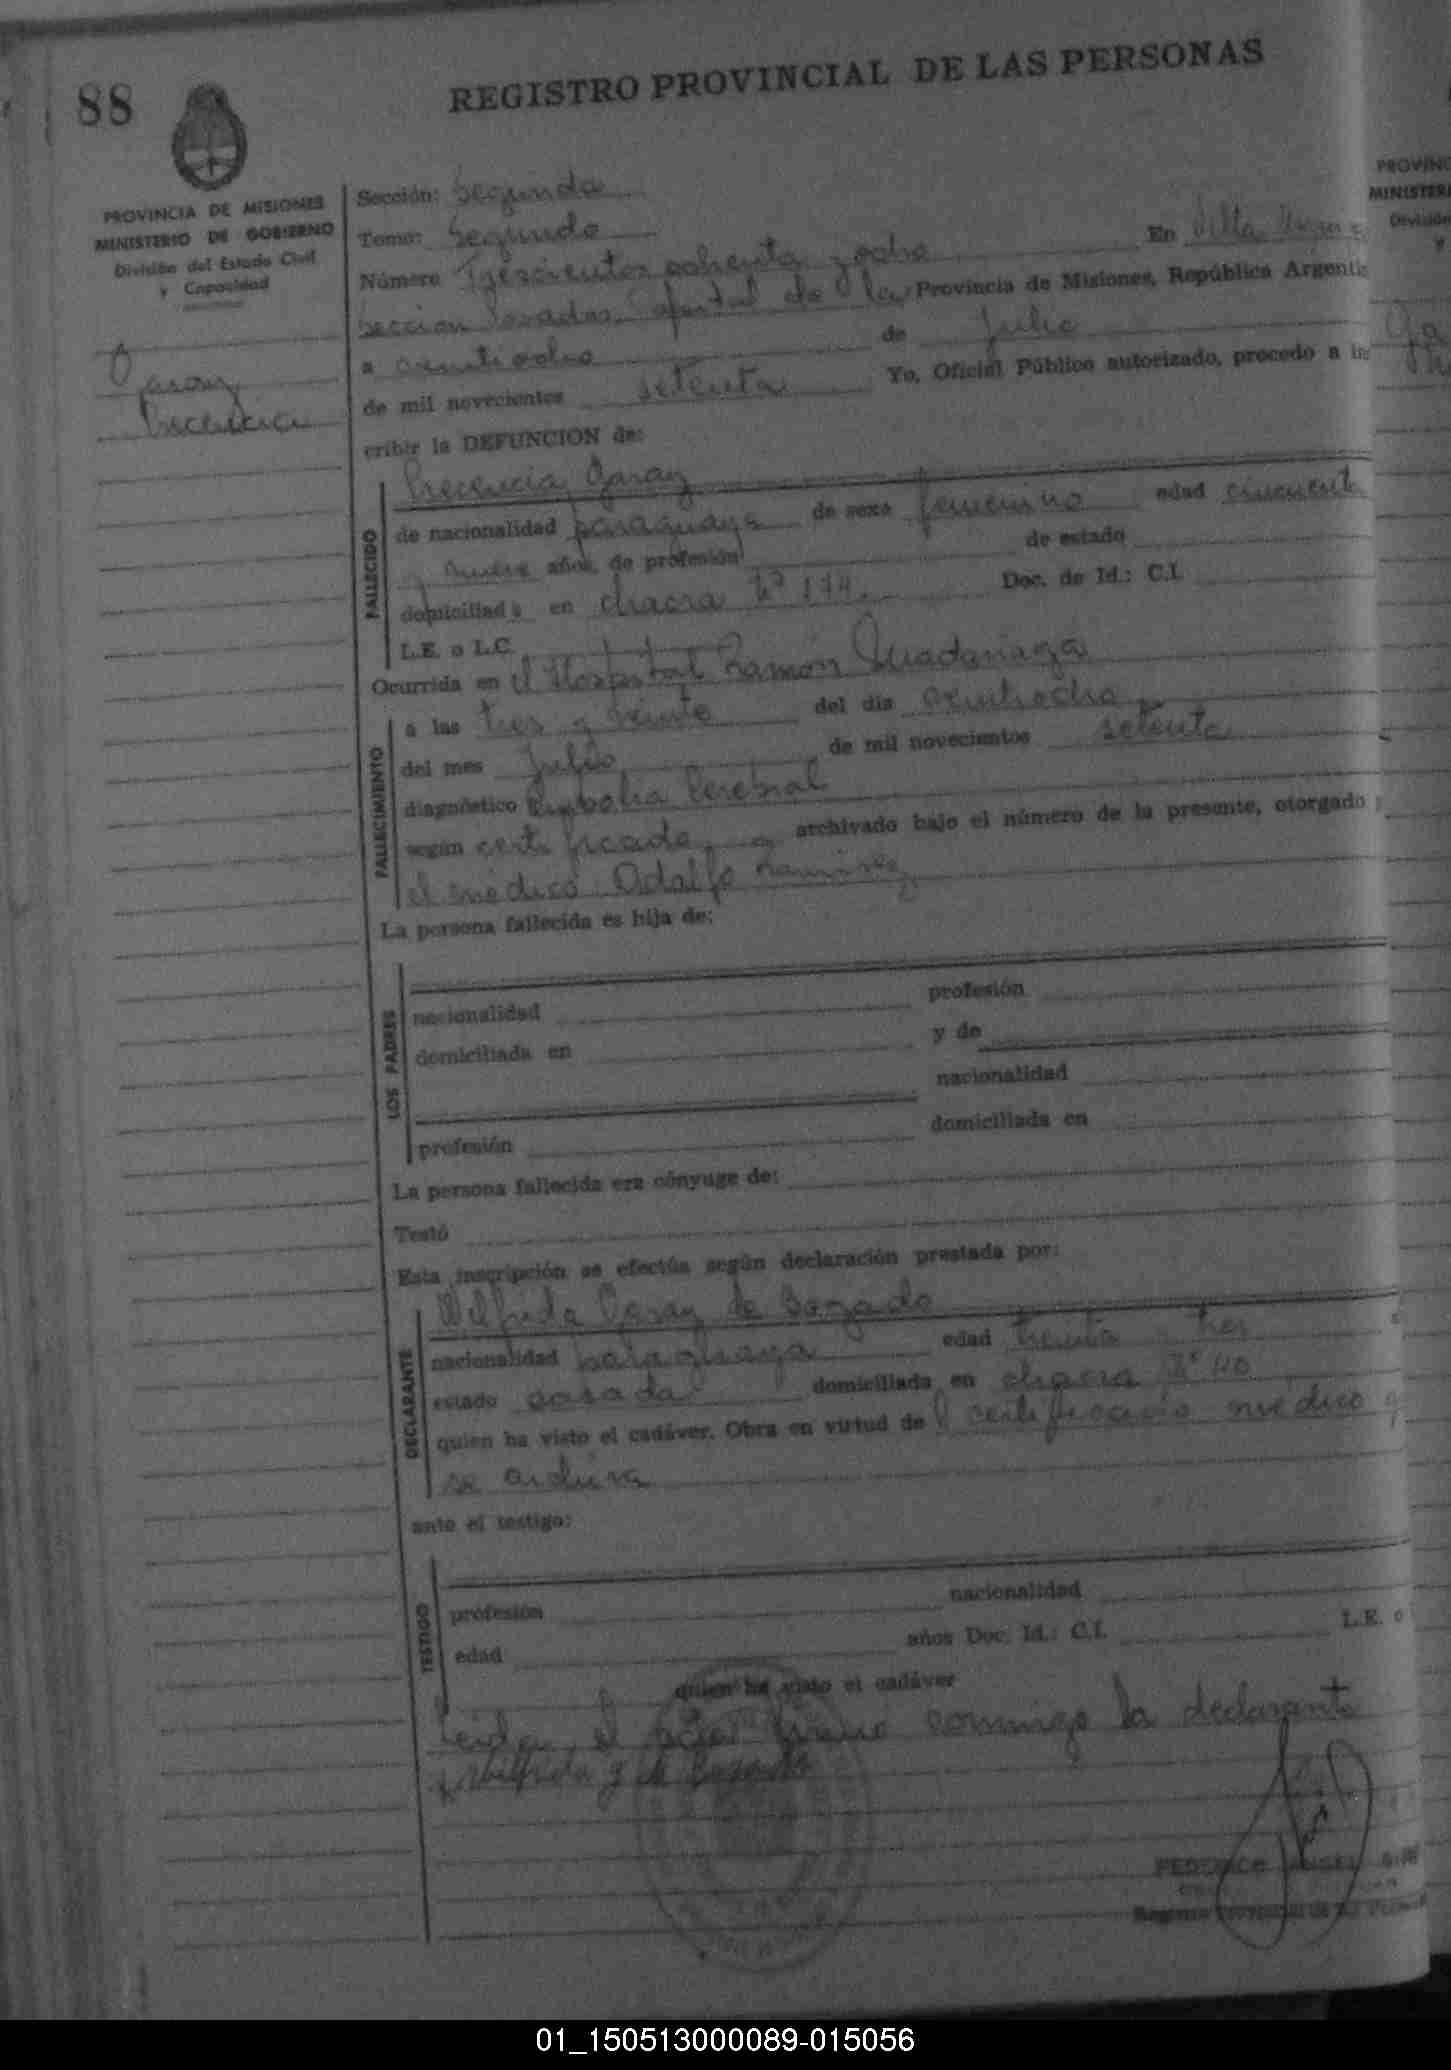 88
REGISTRO PROVINCIAL DE LAS PERSONAS
PROVINCIA DE MISIONES
MINISTERIO DE GOBIERNO
División del Estado Civil
y Capacidad
Garay
Sección: Segunda
Tomo: Segundo
En Villa
Número Trescientos ochenta y ocho
seccion Posadas, Capital de la Provincia de Misiones, República Argenti
a veintiocho de Julio
de mil novecientos setenta Yo, Oficial Público autorizado, procedo a ins
cribir la DEFUNCION de:
FALLECIDO
Garay
de nacionalidad paraguaya de sexo femenino edad cincuenta
y nueve años, de profesión de estado
domiciliada en chacra Nº 174. Doc. de Id.: C.I.
L.E. o L.C.
Ocurrida en el Hospital Ramón Madariaga
FALLECIMIENTO
a las tres y veinte del día veintiocho
del mes Julio de mil novecientos setenta
diagnóstico Embolia Cerebral
según certificado archivado bajo el número de la presente, otorgado
el médico Adolfo Ramirez
La persona fallecida es hija de:
LOS PADRES
nacionalidad profesión
domiciliada en y de
nacionalidad
profesión domiciliada en
La persona fallecida era cónyuge de:
Testó
Esta inscripción se efectúa según declaración prestada por:
DECLARANTE
Wilfrida Garay de
nacionalidad paraguaya edad treinta y tres
estado casada domiciliada en chacra Nº 40
quien ha visto el cadáver. Obra en virtud del certificado médico q
se archiva
ante el testigo:
TESTIGO
profesión nacionalidad
edad años Doc. Id.: C.I. L.E. o
quien ha visto el cadáver
Leida el acta firmó conmigo la declarante
Wilfrida G de
FEDERICO
PROVINC
MINISTERI
División
y
Ga
01_150513000089-015056